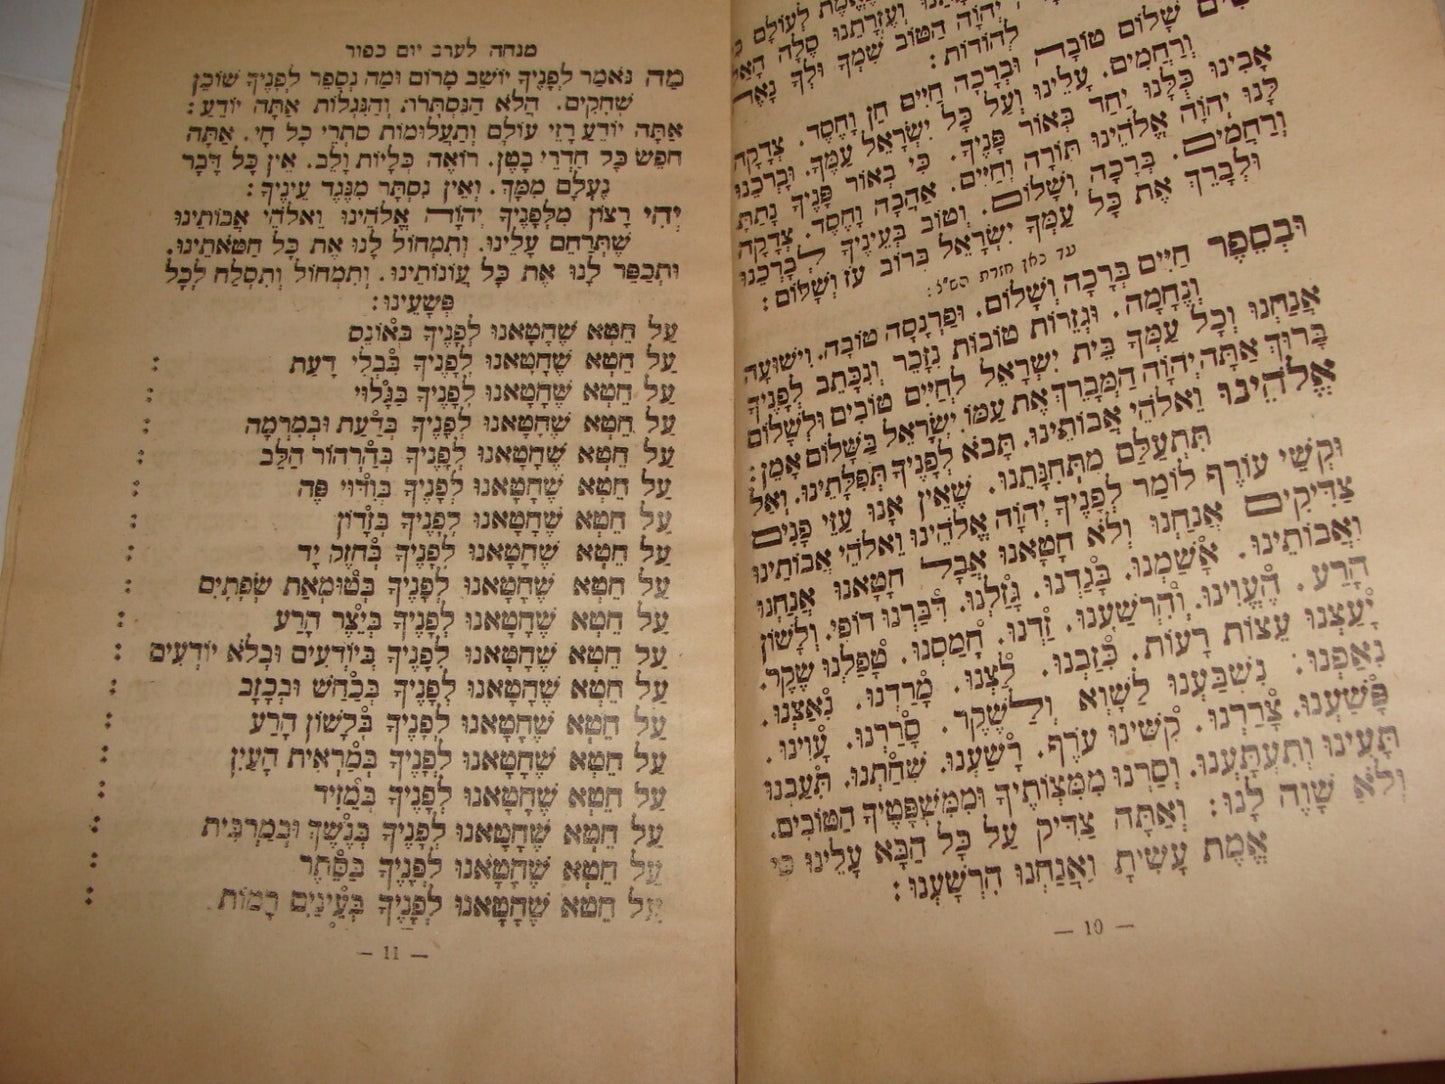 לְעוֹלָם
וְעֶזְרָתֵנוּ סֶלָה הָאֵל
יְהֹוָה הַטּוֹב שִׁמְךָ וּלְךָ נָאֶה
לְהוֹדוֹת:
שִׂים שָׁלוֹם טוֹבָה וּבְרָכָה חַיִּים חֵן וָחֶסֶד. צְדָקָה
וְרַחֲמִים. עָלֵינוּ וְעַל כָּל יִשְׂרָאֵל עַמֶּךָ. וּבָרְכֵנוּ
אָבִינוּ כֻּלָּנוּ יַחַד בְּאוֹר פָּנֶיךָ. כִּי בְאוֹר פָּנֶיךָ נָתַתָּ
לָּנוּ יְהֹוָה אֱלֹהֵינוּ תּוֹרָה וְחַיִּים. אַהֲבָה וָחֶסֶד. צְדָקָה
וְרַחֲמִים. בְּרָכָה וְשָׁלוֹם. וְטוֹב בְּעֵינֶיךָ לְבָרְכֵנוּ
וּלְבָרֵךְ אֶת כָּל עַמְּךָ יִשְׂרָאֵל בְּרוֹב עֹז וְשָׁלוֹם:
עד כאן חזרת הש״ץ:
וּבְסֵפֶר חַיִּים בְּרָכָה וְשָׁלוֹם. וּפַרְנָסָה טוֹבָה. וִישׁוּעָה
וְנֶחָמָה. וּגְזֵרוֹת טוֹבוֹת נִזָּכֵר וְנִכָּתֵב לְפָנֶיךָ
אֲנַחְנוּ וְכָל עַמְּךָ בֵּית יִשְׂרָאֵל לְחַיִּים טוֹבִים וּלְשָׁלוֹם
בָּרוּךְ אַתָּה יְהֹוָה הַמְבָרֵךְ אֶת עַמּוֹ יִשְׂרָאֵל בַּשָּׁלוֹם אָמֵן:
אֱלֹהֵינוּ וֵאלֹהֵי אֲבוֹתֵינוּ. תָּבֹא לְפָנֶיךָ תְּפִלָּתֵינוּ. וְאַל
תִּתְעַלַּם מִתְּחִנָּתֵנוּ. שֶׁאֵין אָנוּ עַזֵּי פָנִים
וּקְשֵׁי עוֹרֶף לוֹמַר לְפָנֶיךָ יְהֹוָה אֱלֹהֵינוּ וֵאלֹהֵי אֲבוֹתֵינוּ
צַדִּיקִים אֲנַחְנוּ וְלֹא חָטָאנוּ אֲבָל חָטָאנוּ אֲנַחְנוּ
וַאֲבוֹתֵינוּ. אָשַׁמְנוּ. בָּגַדְנוּ. גָּזַלְנוּ. דִּבַּרְנוּ דוֹפִי. וְלָשׁוֹן
הָרַע. הֶעֱוִינוּ. וְהִרְשַׁעְנוּ. זַדְנוּ. חָמַסְנוּ. טָפַלְנוּ שֶׁקֶר.
יָעַצְנוּ עֵצוֹת רָעוֹת. כִּזַּבְנוּ. לַצְנוּ. מָרַדְנוּ. נִאַצְנוּ.
נִאַפְנוּ. נִשְׁבַּעְנוּ לַשָּׁוְא וְלַשֶּׁקֶר. סָרַרְנוּ. עָוִינוּ.
פָּשַׁעְנוּ. צָרַרְנוּ. קִשִּׁינוּ עֹרֶף. רָשַׁעְנוּ. שִׁחַתְנוּ. תִּעַבְנוּ
תָּעִינוּ וְתִעְתָּעְנוּ. וְסַרְנוּ מִמִּצְוֹתֶיךָ וּמִמִּשְׁפָּטֶיךָ הַטּוֹבִים.
וְלֹא שָׁוֶה לָנוּ: וְאַתָּה צַדִּיק עַל כָּל הַבָּא עָלֵינוּ כִּי
אֱמֶת עָשִׂיתָ וַאֲנַחְנוּ הִרְשָׁעְנוּ:
— 10 —
מנחה לערב יום כפור
מַה נֹּאמַר לְפָנֶיךָ יוֹשֵׁב מָרוֹם וּמַה נְסַפֵּר לְפָנֶיךָ שׁוֹכֵן
שְׁחָקִים. הֲלֹא הַנִּסְתָּרוֹת וְהַנִּגְלוֹת אַתָּה יוֹדֵעַ:
אַתָּה יוֹדֵעַ רָזֵי עוֹלָם וְתַעֲלוּמוֹת סִתְרֵי כָל חָי. אַתָּה
חֹפֵשׂ כָּל חַדְרֵי בָטֶן. רוֹאֶה כְלָיוֹת וָלֵב. אֵין כָּל דָּבָר
נֶעְלָם מִמָּךְ. וְאֵין נִסְתָּר מִנֶּגֶד עֵינֶיךָ:
יְהִי רָצוֹן מִלְּפָנֶיךָ יְהֹוָה אֱלֹהֵינוּ וֵאלֹהֵי אֲבוֹתֵינוּ
שֶׁתְּרַחֵם עָלֵינוּ. וְתִמְחוֹל לָנוּ אֶת כָּל חַטֹּאתֵינוּ.
וּתְכַפֵּר לָנוּ אֶת כָּל עֲוֹנוֹתֵינוּ. וְתִמְחוֹל וְתִסְלַח לְכָל
פְּשָׁעֵינוּ:
עַל חֵטְא שֶׁחָטָאנוּ לְפָנֶיךָ בְּאוֹנֶס
עַל חֵטְא שֶׁחָטָאנוּ לְפָנֶיךָ בִּבְלִי דָעַת :
עַל חֵטְא שֶׁחָטָאנוּ לְפָנֶיךָ בַּגָּלוּי :
עַל חֵטְא שֶׁחָטָאנוּ לְפָנֶיךָ בְּדַעַת וּבְמִרְמָה :
עַל חֵטְא שֶׁחָטָאנוּ לְפָנֶיךָ בְּהַרְהוֹר הַלֵּב :
עַל חֵטְא שֶׁחָטָאנוּ לְפָנֶיךָ בְּוִדּוּי פֶּה :
עַל חֵטְא שֶׁחָטָאנוּ לְפָנֶיךָ בְּזָדוֹן :
עַל חֵטְא שֶׁחָטָאנוּ לְפָנֶיךָ בְּחֹזֶק יָד :
עַל חֵטְא שֶׁחָטָאנוּ לְפָנֶיךָ בְּטוּמְאַת שְׂפָתָיִם :
עַל חֵטְא שֶׁחָטָאנוּ לְפָנֶיךָ בְּיֵצֶר הָרַע :
עַל חֵטְא שֶׁחָטָאנוּ לְפָנֶיךָ בְּיוֹדְעִים וּבְלֹא יוֹדְעִים :
עַל חֵטְא שֶׁחָטָאנוּ לְפָנֶיךָ בְּכַחַשׁ וּבְכָזָב :
עַל חֵטְא שֶׁחָטָאנוּ לְפָנֶיךָ בְּלָשׁוֹן הָרַע :
עַל חֵטְא שֶׁחָטָאנוּ לְפָנֶיךָ בְּמַרְאִית הָעַיִן :
עַל חֵטְא שֶׁחָטָאנוּ לְפָנֶיךָ בְּמֵזִיד :
עַל חֵטְא שֶׁחָטָאנוּ לְפָנֶיךָ בְּנֶשֶׁךְ וּבְמַרְבִּית :
עַל חֵטְא שֶׁחָטָאנוּ לְפָנֶיךָ בַּסֵּתֶר :
עַל חֵטְא שֶׁחָטָאנוּ לְפָנֶיךָ בְּעֵינַיִם רָמוֹת :
— 11 —